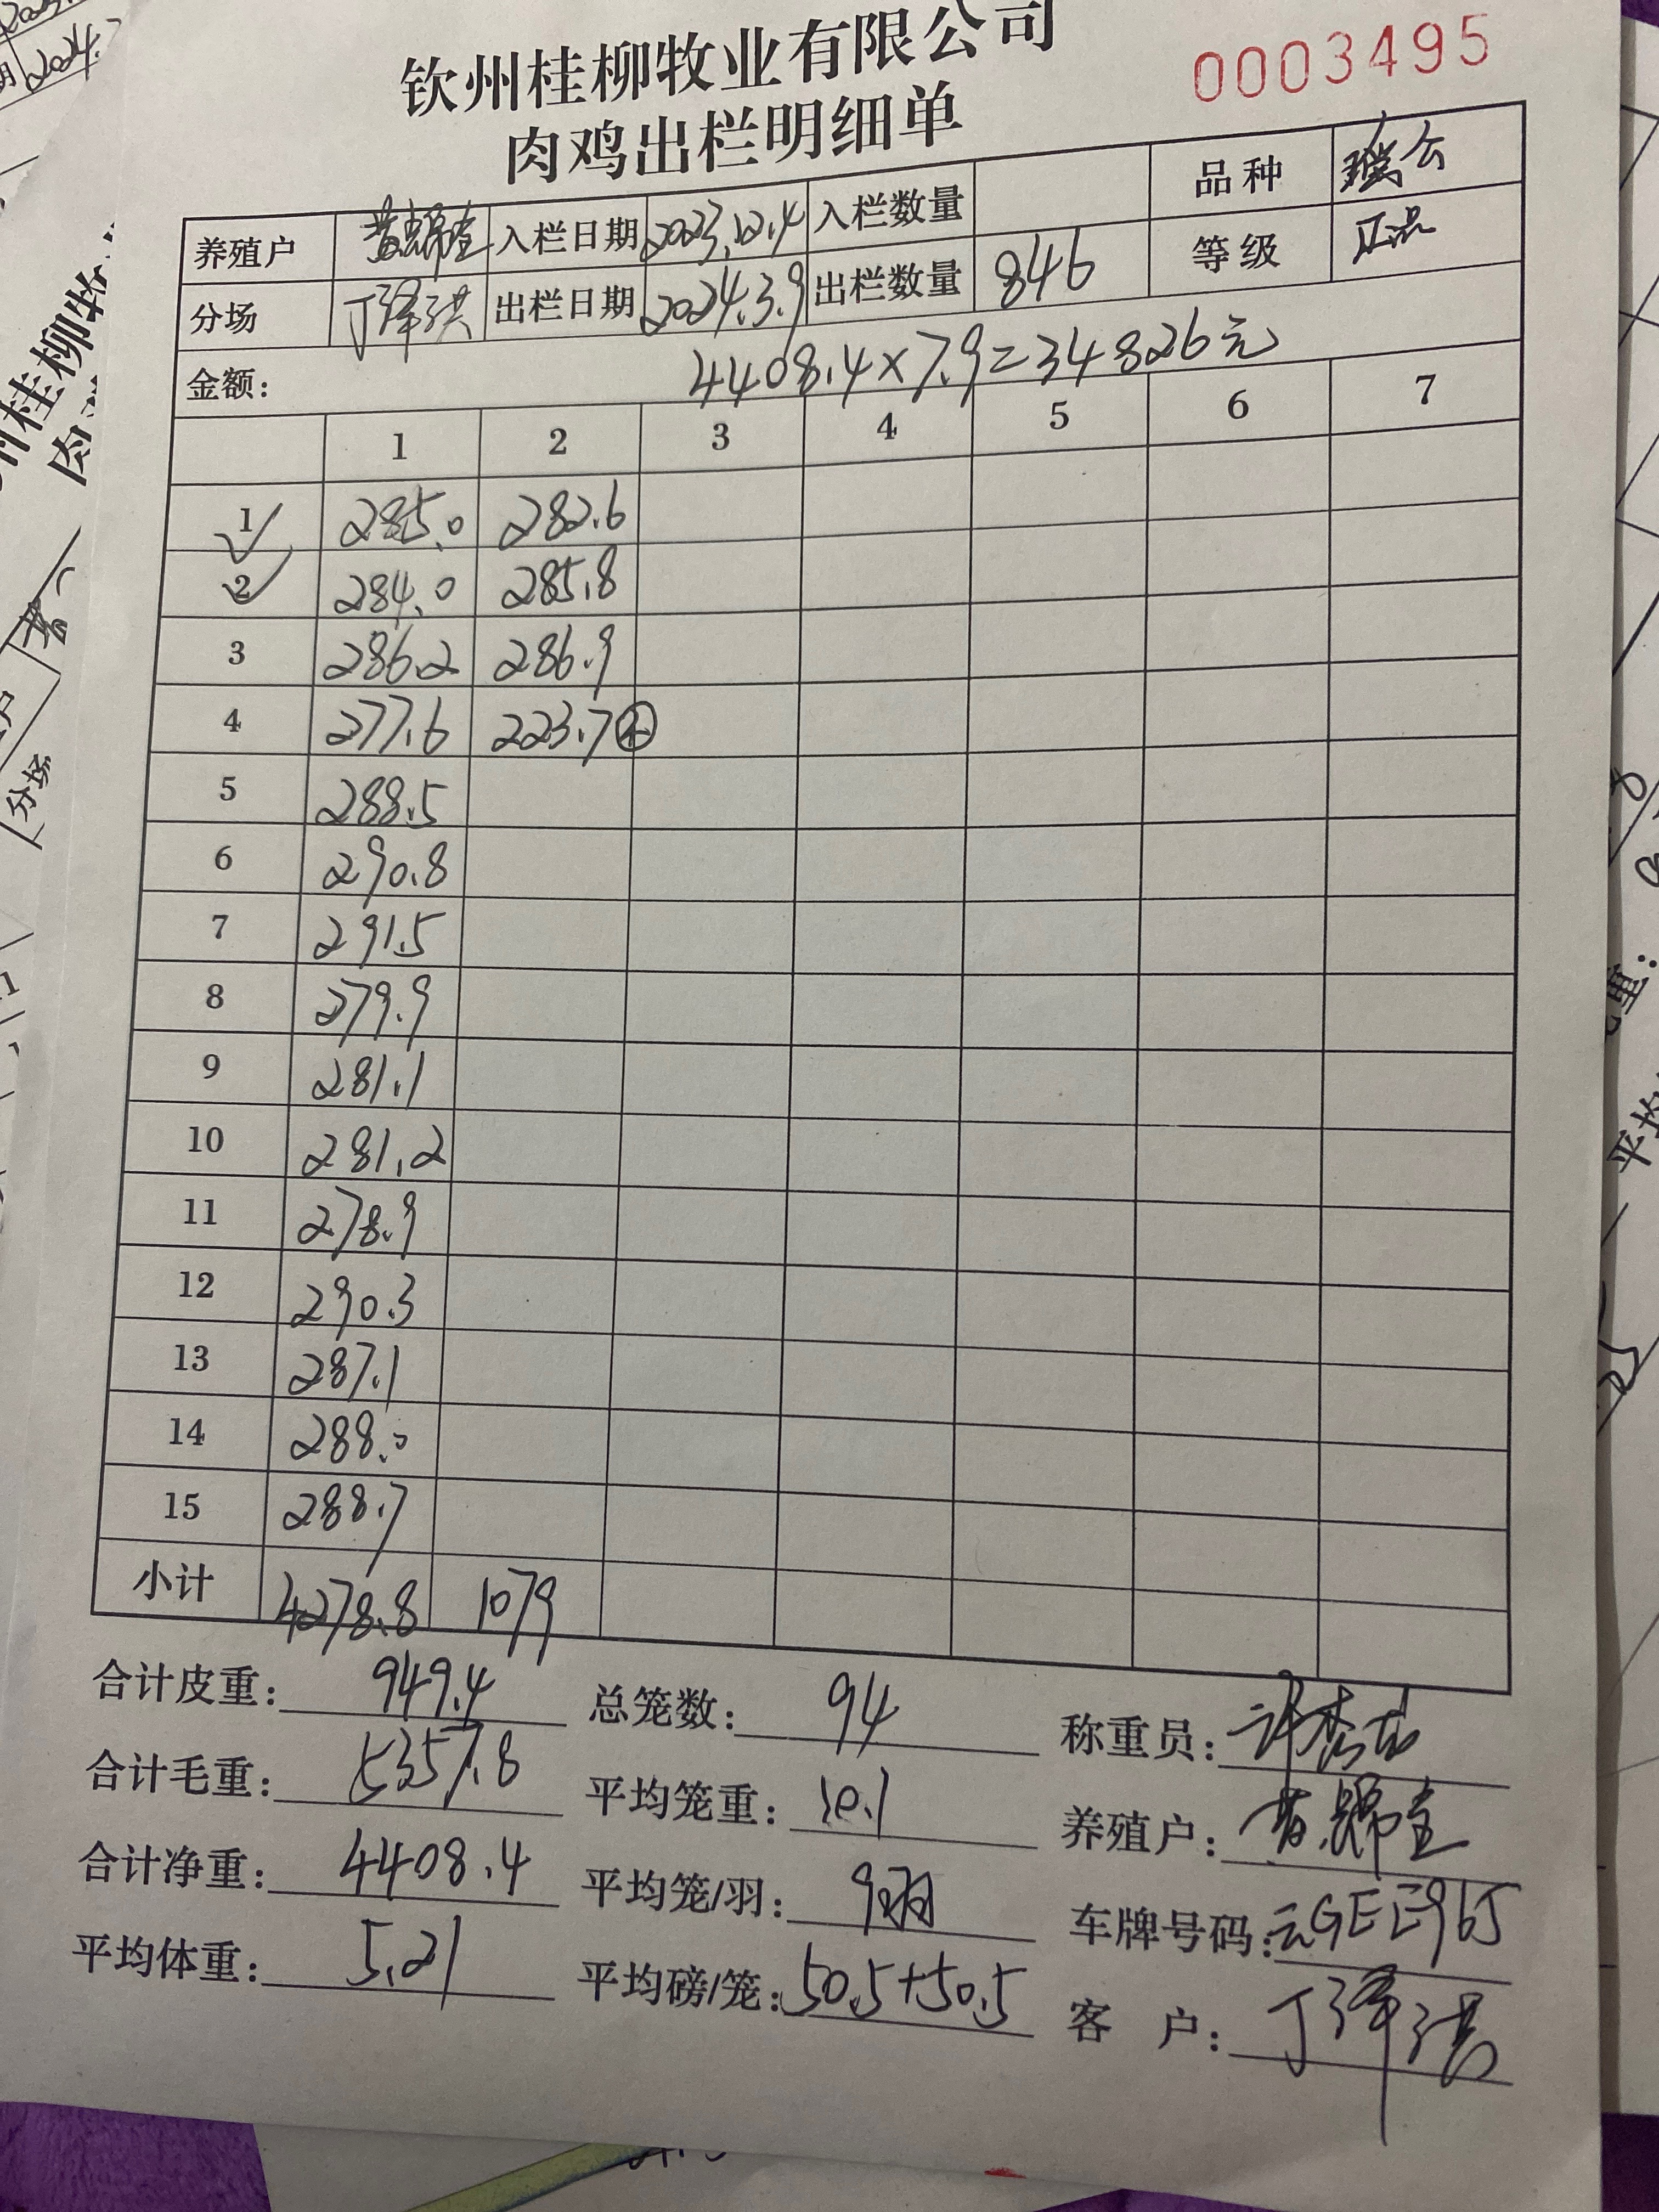 钦州桂柳牧业有限公司
0003495
肉鸡出栏明细单
养殖户 入栏日期 2023.12.4 入栏数量 品种
分场 丁泽洪 出栏日期 2024.3.9 出栏数量 846 等级 正品
金额： 4408.4×7.9=34826元
1 2 3 4 5 6 7
1 285.0 282.6
2 284.0 285.8
3 286.2 286.9
4 277.6 223.7
5 288.5
6 290.8
7 291.5
8 279.9
9 281.1
10 281.2
11 278.9
12 290.3
13 287.1
14 288.0
15 288.7
小计 4278.8 1079
合计皮重： 949.4 总笼数： 94 称重员：
合计毛重： 5357.8 平均笼重： 10.1 养殖户：
合计净重： 4408.4 平均笼/羽： 9羽 车牌号码：
平均体重： 5.21 平均磅/笼： 50.5+50.5 客户： 丁泽洪